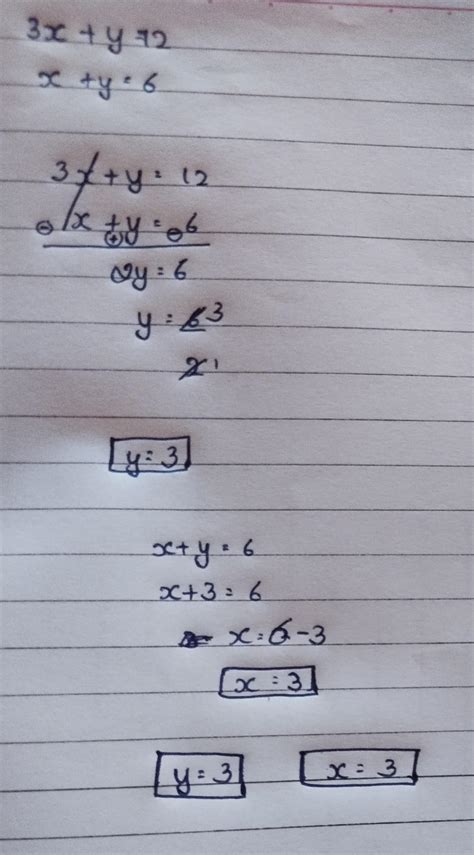 3x + y = 12
x + y = 6
3x + y = 12
⊖ x ⊕ y = ⊖ 6
2y = 6
y = 6 3
2 1
y = 3
x + y = 6
x + 3 = 6
x = 6 - 3
x = 3
y = 3 x = 3